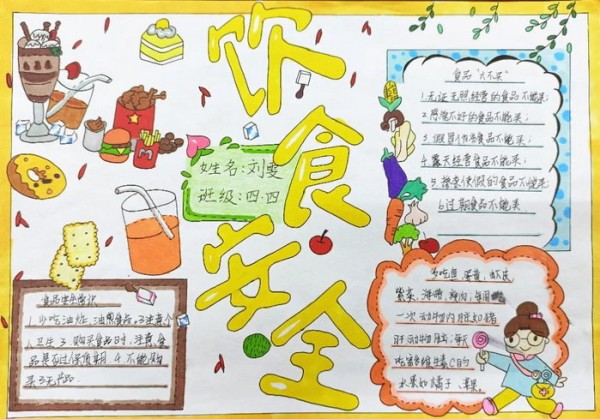 饮食安全
姓名:刘雯
班级:四.四
食品"六不买"
1.无证无照经营的食品不能买
2.质保不好的食品不能买
3.假冒伪劣食品不能买
4.露天经营食品不能买
5.掺杂使假的食品不能买
6过期食品不能买
食品安全常识
1.少吃油炸、油图食品。2注意个
人卫生 3.购买食品时,注意食
品是否过保质期 4.不能购
买三无产品.
多吃鱼,蛋黄,虾皮
紫菜,海带,瘦肉,每周
一次动物内脏如猪
肝动物脑;每天
吃富含维生素C的
水果如橘子、苹果.
M